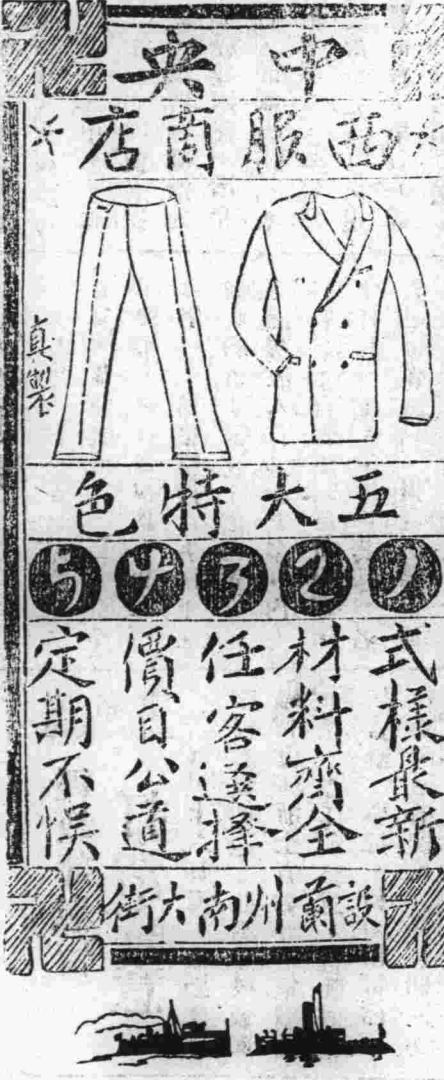 中央
西服商店
真製
五大特色
1 2 3 4 5
式樣最新
材料齊全
任客選擇
價目公道
定期不悞
設蘭州南大街